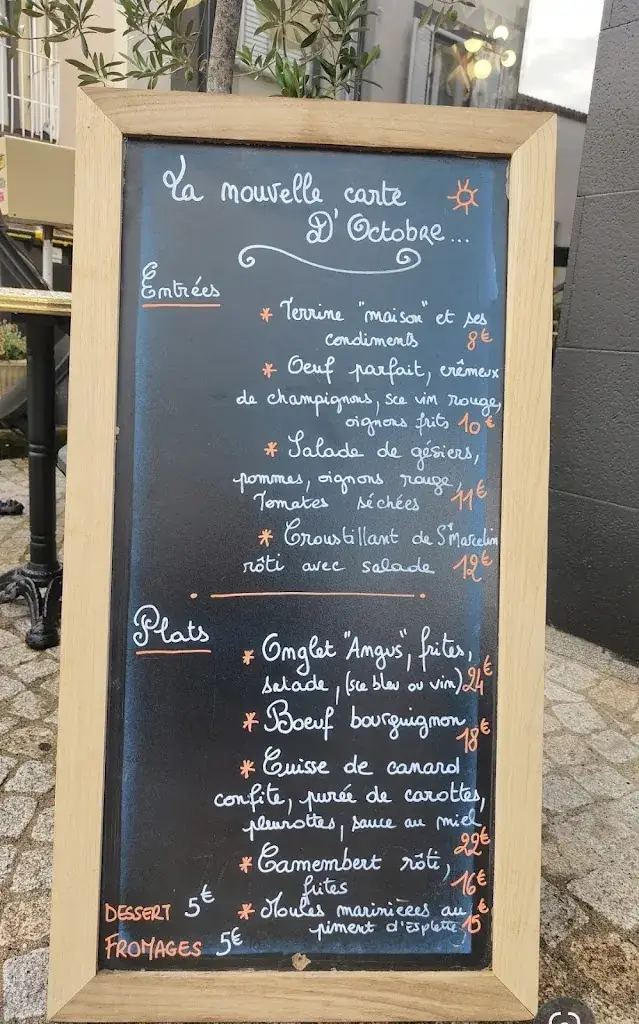 La nouvelle carte
D'Octobre...
Entrées
* Terrine "maison" et ses
condiments 8€
* Oeuf parfait, crêmeux
de champignons, sce vin rouge,
oignons frits 10€
* Salade de gésiers,
pommes, oignons rouge,
Tomates séchées 11€
* Croustillant de St Marcelin
rôti avec salade 12€
Plats
* Onglet "Angus", frites,
salade, (sce bleu ou vin) 24€
* Boeuf bourguignon
18€
* Cuisse de canard
confite, purée de carottes,
pleurottes, sauce au miel
22€
* Camembert rôti,
frites 16€
* Moules marinières au 15€
piment d'Esplette
DESSERT 5€
FROMAGES 5€